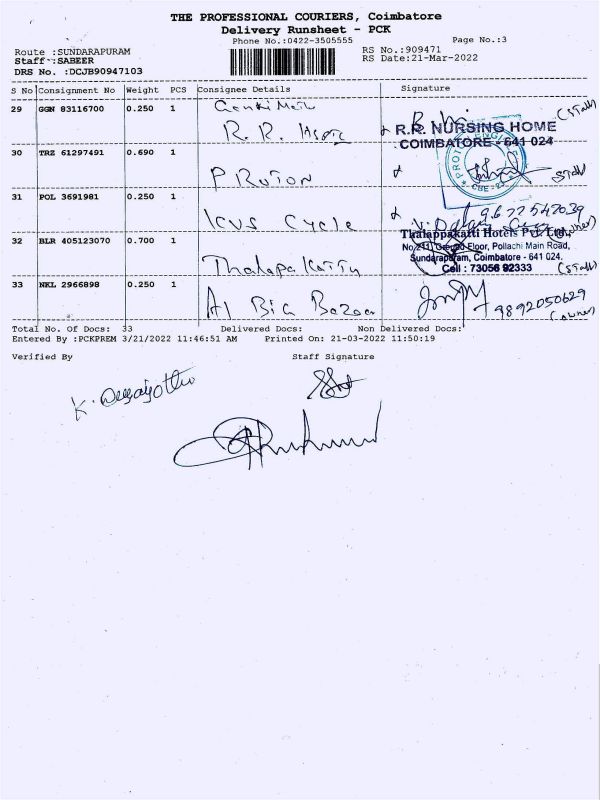 THE PROFESSIONAL COURIERS, Coimbatore
Delivery Runsheet - PCK
Phone No.:0422-3505555 Page No.:3
Route :SUNDARAPURAM RS No.:909471
Staff :SABEER RS Date:21-Mar-2022
DRS No. :DCJB90947103
S No Consignment No Weight PCS Consignee Details Signature
29 GGN 83116700 0.250 1
R.R. (Staff)
R.R. NURSING HOME
COIMBATORE - 641 024
30 TRZ 61297491 0.690 1
PROTON Staff
31 POL 3691981 0.250 1
Cycle 9677547039
(owner)
32 BLR 405123070 0.700 1 Thalappakatti Hotels Pvt. Ltd.,
No.2 Ground Floor, Pollachi Main Road,
Sundarapuram, Coimbatore - 641 024.
Thalapakatty Cell : 73056 92333 (Staff)
33 NKL 2966898 0.250 1
Al Big Bazaar 9892050629
(owner)
Total No. Of Docs: 33 Delivered Docs: Non Delivered Docs:
Entered By :PCKPREM 3/21/2022 11:46:51 AM Printed On: 21-03-2022 11:50:19
Verified By Staff Signature